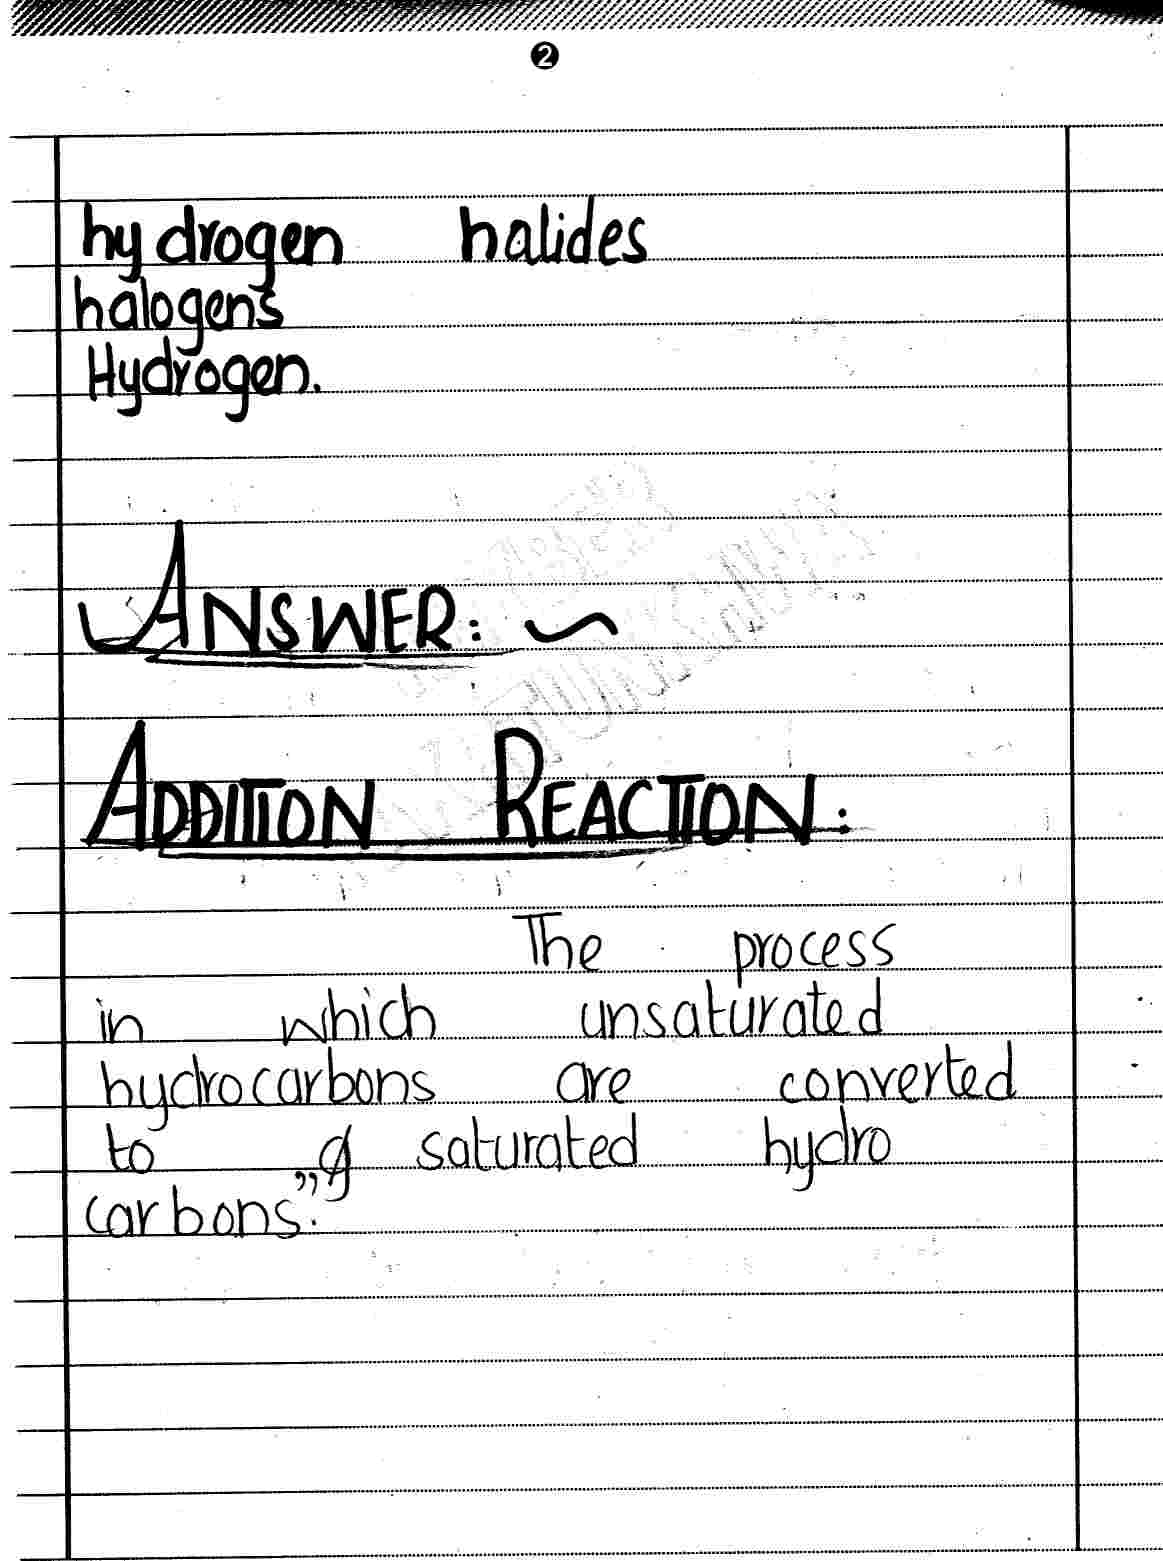 2
hydrogen halides
halogens
Hydrogen.
ANSWER:
ADDITION REACTION:
The process
in which unsaturated
hydrocarbons are converted
to saturated hydro
carbons."